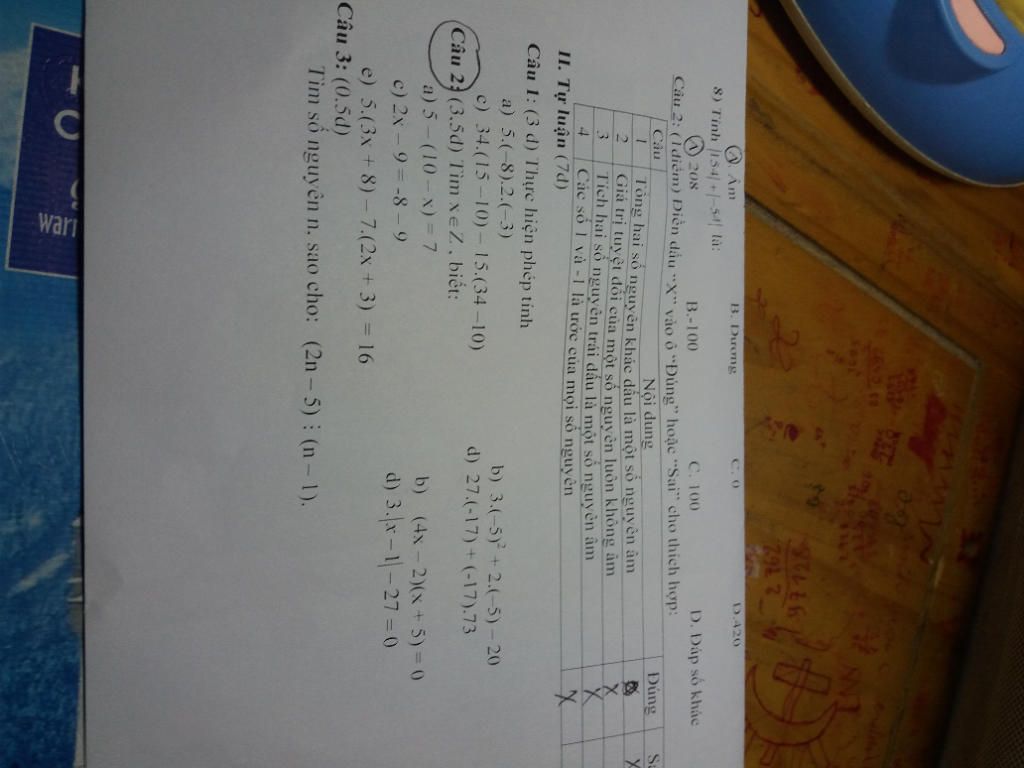 A Âm B. Dương C. 0 D.420
8) Tính |154| + |-54| là:
A 208 B.-100 C. 100 D. Đáp số khác
Câu 2: (1điểm) Điền dấu “X” vào ô “Đúng” hoặc “Sai” cho thích hợp:
Câu Nội dung Đúng
1 Tổng hai số nguyên khác dấu là một số nguyên âm X
2 Giá trị tuyệt đối của một số nguyên luôn không âm X
3 Tích hai số nguyên trái dấu là một số nguyên âm X
4 Các số 1 và -1 là ước của mọi số nguyên X
II. Tự luận (7đ)
Câu 1: (3 đ) Thực hiện phép tính
a) 5.(−8).2.(−3) b) 3.(−5)² + 2.(−5) − 20
c) 34.(15 −10) − 15.(34 −10) d) 27.(-17) + (-17).73
Câu 2: (3.5đ) Tìm x ∈ Z , biết:
a) 5 − (10 − x) = 7 b) (4x − 2)(x + 5) = 0
c) 2x − 9 = -8 − 9 d) 3.|x − 1| − 27 = 0
e) 5.(3x + 8) − 7.(2x + 3) = 16
Câu 3: (0.5đ)
Tìm số nguyên n, sao cho: (2n − 5) ⋮ (n − 1).
warr